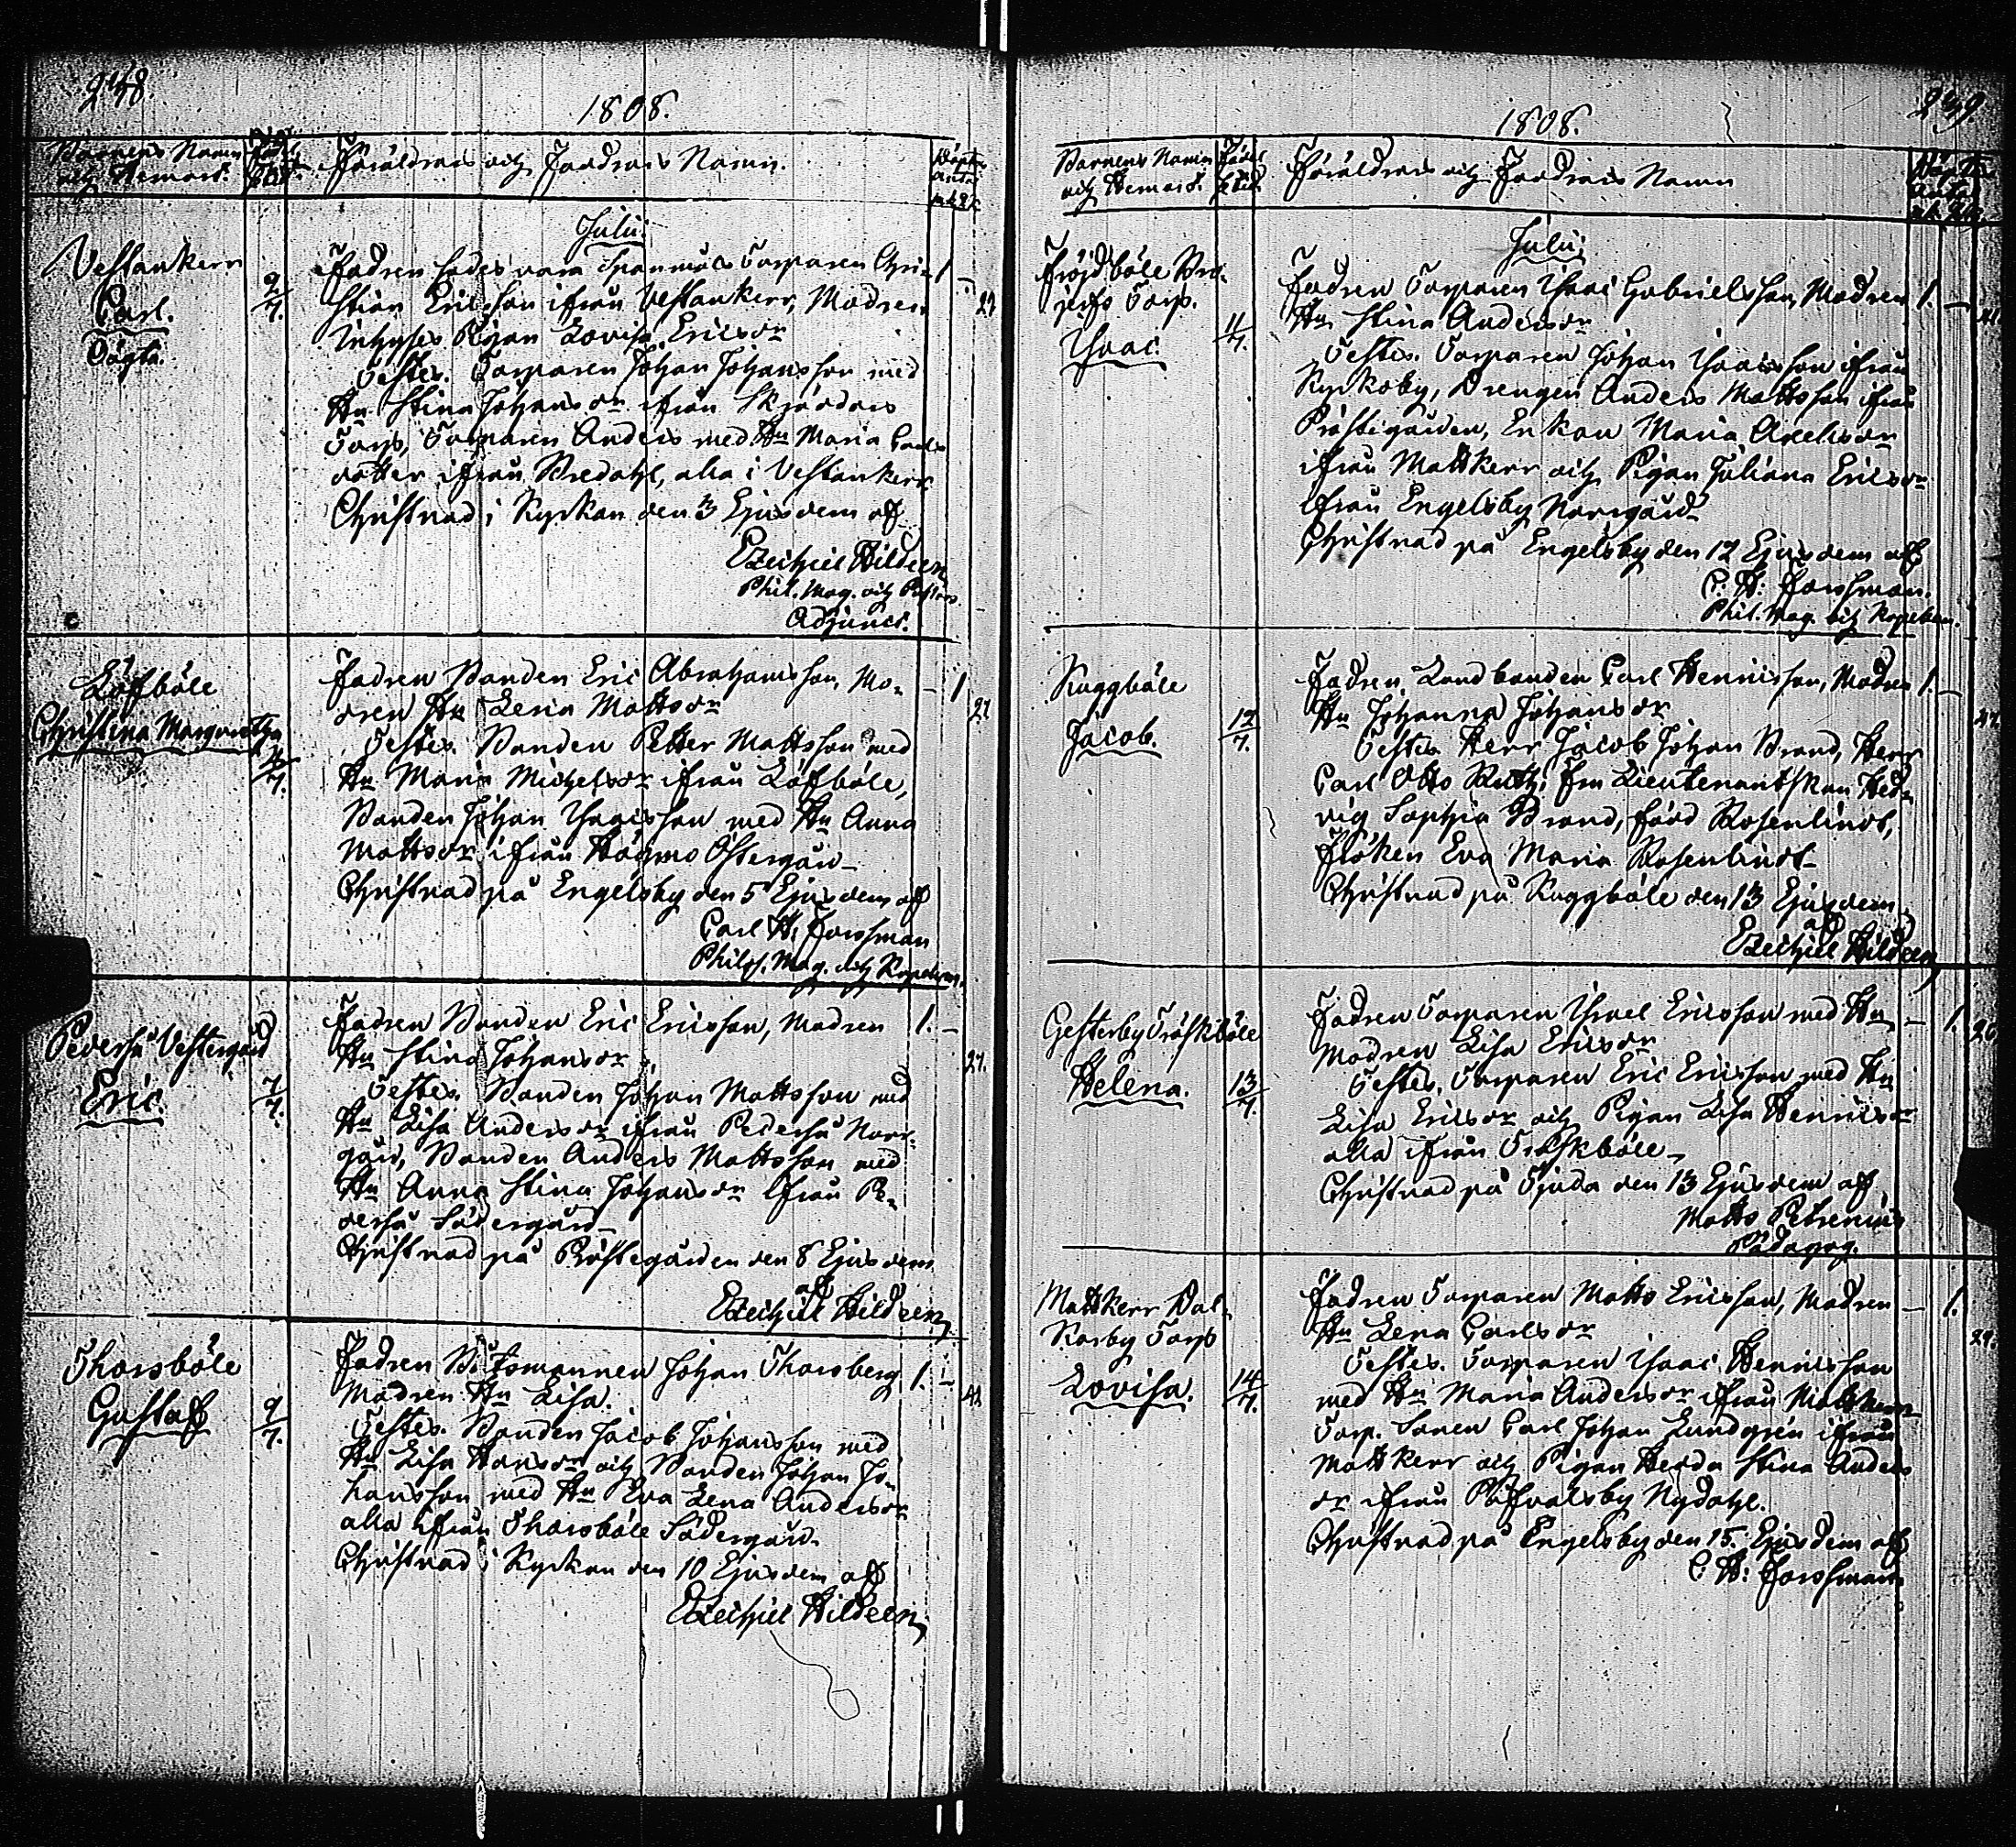 248
1808.
Barnens Namn
och Hemort.
Föräldrars och Faddrars Namn.
Julii.
Vestankerr
Carl.
Oägta.
2/7.
Fadren sades vara Spanmåls Torparen Chri-
stian Ericsson ifrån Vestankerr, Modren
Inhyses Pigan Lovisa Ericsdr
Testes. Torparen Johan Johansson med
Hu Stina Johansdr ifrån Skräddars
Torp, Torparen Anders med Hu Maria Carls
dotter ifrån Bredahl, alla i Vestankerr
Christnad i Kyrkan den 3 Ejusdem af
Ezechiel Hildeen
Phil. Mag. och Pastors
Adjunct.
1 -
27
Löfböle
Christina Margaretha
4/7.
Fadren Bonden Eric Abrahamsson, Mo-
dren Hu Lena Mattsdr
Testes. Bonden Petter Mattsson med
Hu Maria Michelsdr ifrån Löfböle,
Bonden Johan Isacsson med Hu Anna
Mattsdr ifrån Högmo Östergård
Christnad på Engelsby den 5 Ejusdem af
Carl H. Forssman
Philos. Mag. och Kapellan.
- 1
27
Pederså Vestergård
Eric.
7/7.
Fadren Bonden Eric Ericsson, Modren
Hu Stina Johansdr.
Testes. Bonden Johan Mattsson med
Hu Lisa Andersdr ifrån Pederså Norr-
gård, Bonden Anders Mattsson med
Hu Anna Stina Johansdr ifrån Pe-
derså Södergård
Christnad på Prästegården den 8 Ejusdem
af
Ezechiel Hildeen
1. -
27.
Thorsböle
Gustaf
9/7.
Fadren Båtsmannen Johan Thorsberg
Modren Hu Lisa.
Testes. Bonden Jacob Johansson med
Hu Lisa Hansdr och Bonden Johan Jo-
hansson med Hu Eva Lena Andersdr
alla ifrån Thorsböle Södergård
Christnad i Kyrkan den 10 Ejusdem af
Ezechiel Hildeen
1. -
249
1808.
Barnens Namn
och Hemort.
Föräldrars och Faddrars Namn
Julii.
Fröjdböle
Torp.
Isaac.
11/7.
Fadren Torparen Isaac Gabrielsson, Modren
Hu Stina Andersdr
Testes. Torparen Johan Isacsson ifrån
Kyrkoby, Drengen Anders Mattsson ifrån
Prästegården, Enkan Maria Axelsdr
ifrån Mattkerr och Pigan Juliana Ericsdr
ifrån Engelsby Norrgård
Christnad på Engelsby den 12 Ejusdem af
C. H: Forssman.
Phil. Mag. och Kapellan.
1. -
Kuggböle
Jacob.
12/7.
Fadren Landbonden Carl Henricsson, Modren
Hu Johanna Johansdr
Testes Herr Jacob Johan Brand, Herr
Carl Otto Ruth, Fru Lieutenantskan Hed-
vig Sophia Brand, född Rosenlindt,
Fröken Eva Maria Rosenlindt
Christnad på Kuggböle den 13 Ejusdem
af
Ezechiel Hildeen
1. -
Gesterby Träskböle
Helena.
13/7.
Fadren Torparen Israel Ericsson med Hu
Modren Lisa Ericsdr
Testes. Torparen Eric Ericsson med Hu
Lisa Ericsdr och Pigan Lisa Henricsdr
alla ifrån Träskböle
Christnad på Tjuda den 13 Ejusdem af
Matts Petrenius
Pädagog.
- 1.
26
Mattkerr Dal-
karby Torp
Lovisa.
14/7.
Fadren Torparen Matts Ericsson, Modren
Hu Lena Carlsdr
Testes. Torparen Isaac Henricsson
med Hu Maria Andersdr ifrån Mattkerr
Torp. Sonen Carl Johan Lundgrén ifrån
Mattkerr och Pigan Hedda Stina Anders
dr ifrån Påfvalsby Nydahl.
Christnad på Engelsby den 15. Ejusdem af
C. H: Forssman.
- 1.
29.